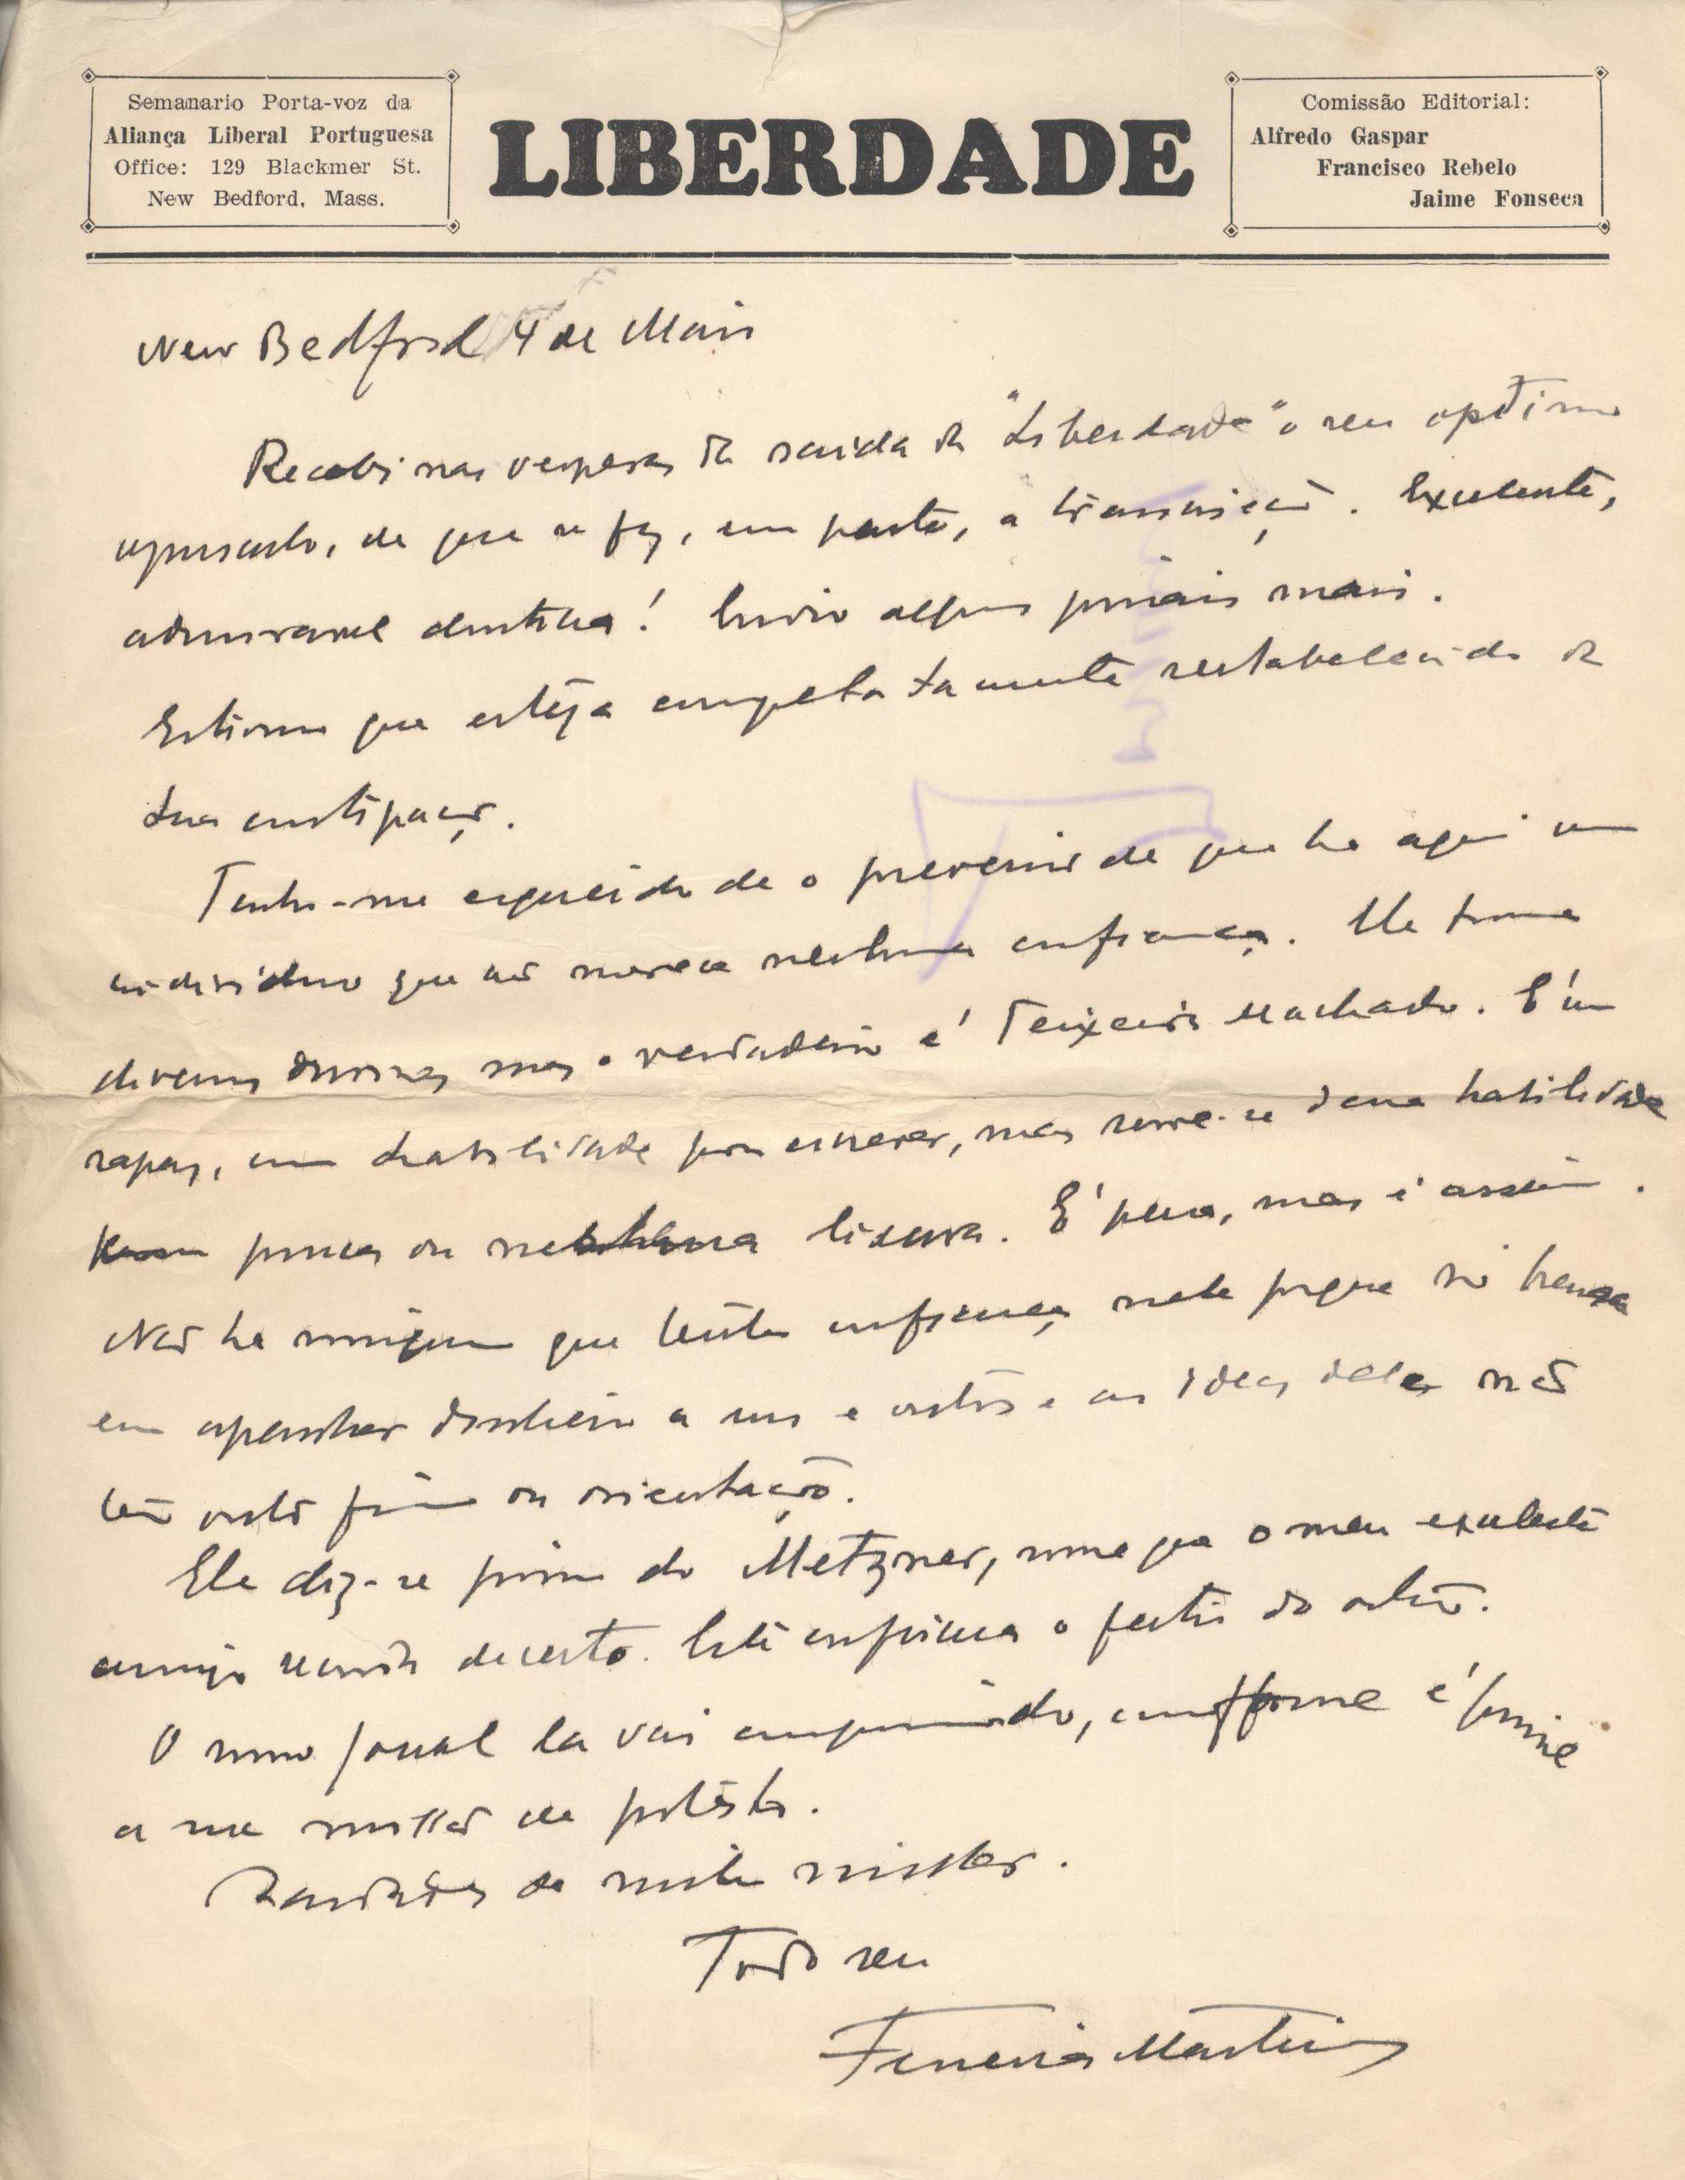 Semanario Porta-voz da
Aliança Liberal Portuguesa
Office: 129 Blackmer St.
New Bedford, Mass.
LIBERDADE
Comissão Editorial:
Alfredo Gaspar
Francisco Rebelo
Jaime Fonseca
New Bedford 4 de Maio
Recebi nas vesperas da saida da "Liberdade" o seu optimo
opusculo, de que se fez, em parte, a transcrição. Excelente,
admiravel doutrina! Envio alguns jornais mais.
Estimo que esteja completamente restabelecido da
sua constipação.
Tenho-me esquecido de o prevenir de que ha aqui um
individuo que não merece nenhuma confiança. Ele toma
diversos nomes mas o verdadeiro é Teixeira Machado. E' um
rapaz, com habilidade para escrever, mas serve-se dessa habilidade
com pouca ou nenhuma lisura. E' pena, mas é assim.
Não ha ninguem que tenha confiança nele porque só pensa
em apanhar dinheiro a uns e outros e as ideas dele não
têm outro fim ou orientação.
Ele diz-se primo do Metzner, nome que o meu excelente
amigo recorda decerto. Este confirma o facto do outro.
O nosso jornal la vai cumprindo, conforme é possivel
a sua missão de protesto.
Saudades do muito
Todo seu
Ferreira Martins